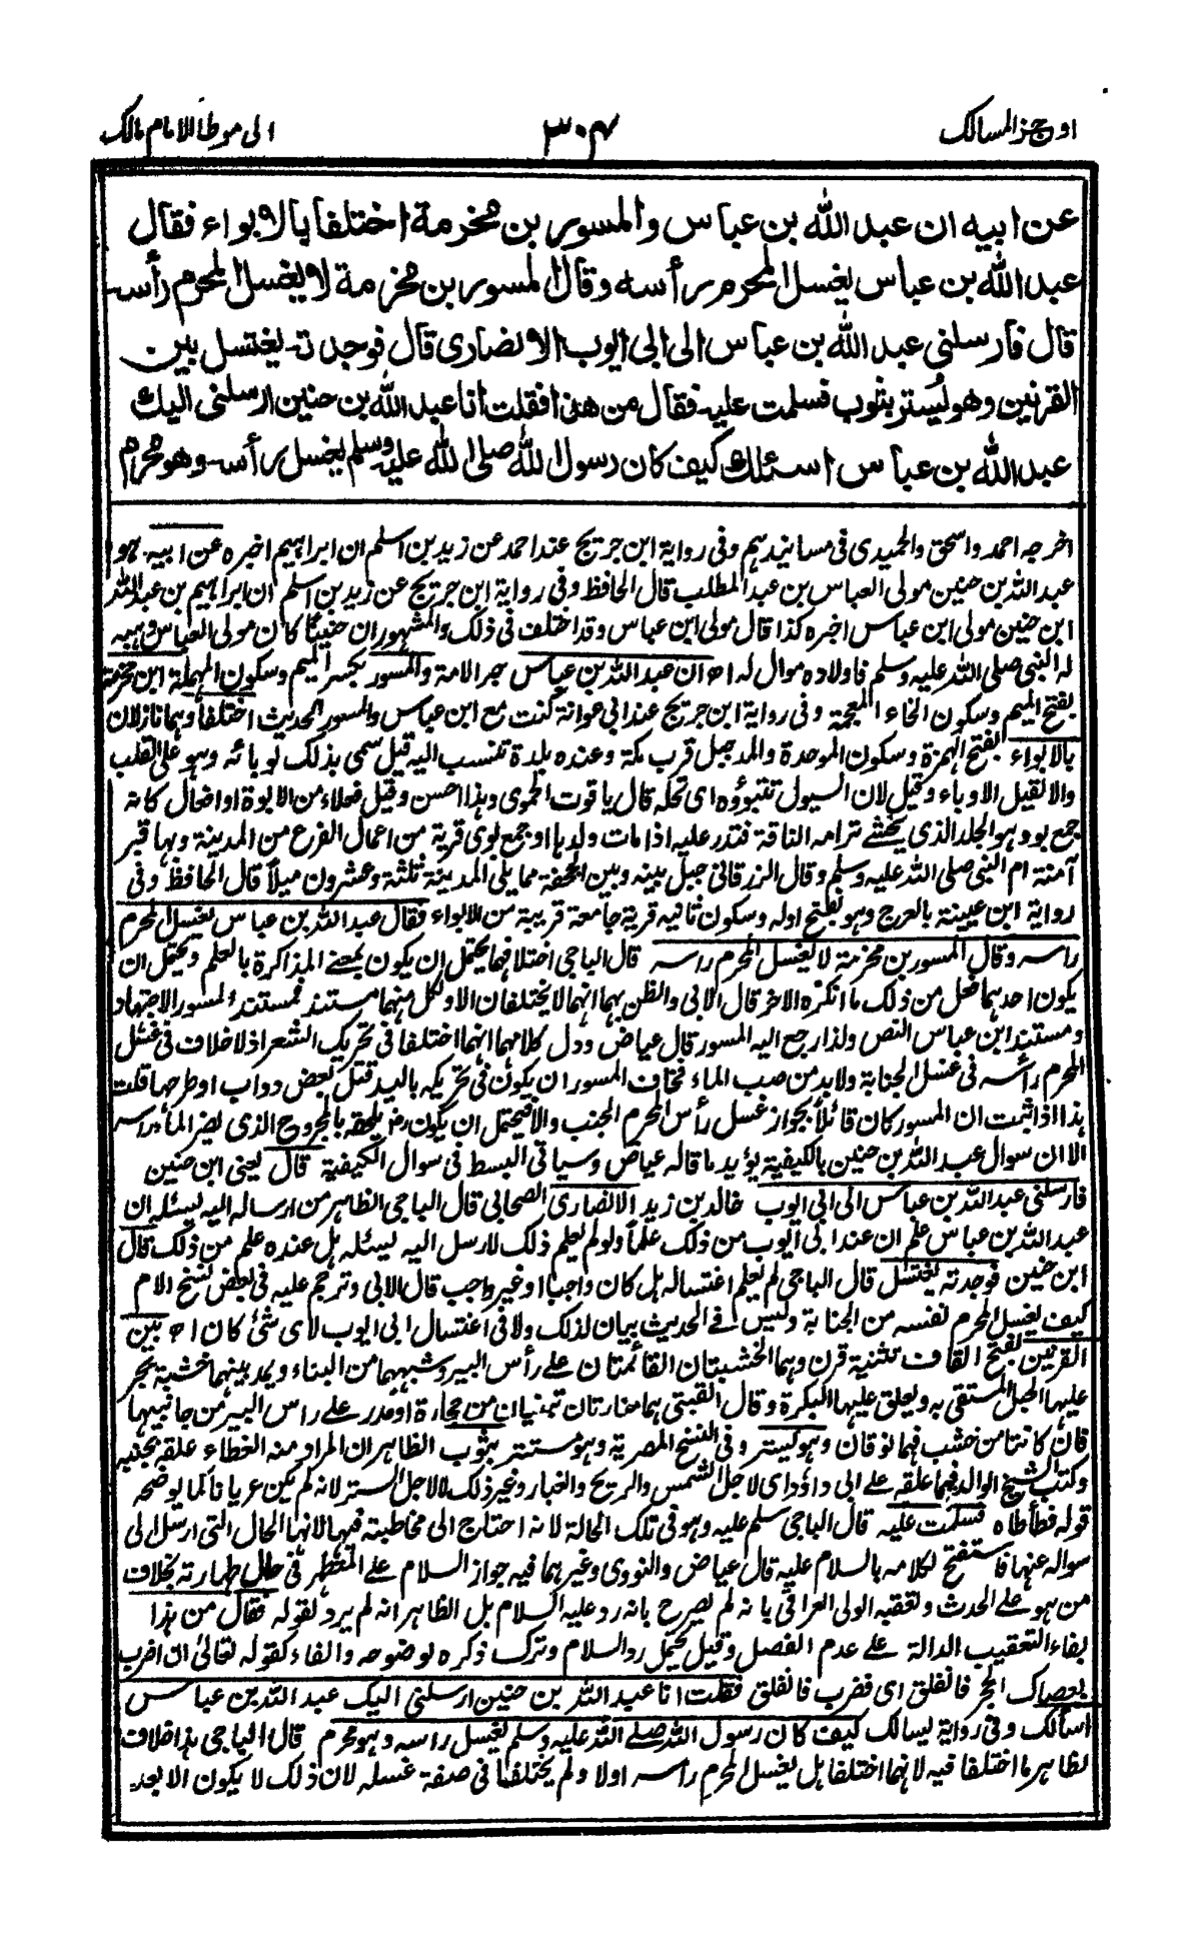 اوجز المسالک ٣٠٤ الی موطا الامام مالک
عن ابيه ان عبد الله بن عباس والمسور بن مخرمة اختلفا بالابواء فقال
عبد الله بن عباس يغسل المحرم رأسه وقال المسور بن مخرمة لا يغسل المحرم رأسه
قال فارسلنی عبد الله بن عباس الی ابی ايوب الانصاری قال فوجدته يغتسل بين
القرنين وهو يُستر بثوب فسلمت عليه فقال من هذا فقلت انا عبد الله بن حنين ارسلنی اليك
عبد الله بن عباس اسئلك كيف كان رسول الله صلی الله عليه وسلم يغسل رأسه وهو محرم
اخرجه احمد واسحق والحمیدی فی مسانیدہم وفی روایة ابن جریج عند احمد عن زید بن اسلم ان ابراہیم اخبرہ عن ابیہ ہوا
عبد اللہ بن حنین مولی العباس بن عبد المطلب قال الحافظ وفی روایة ابن جریج عن زید بن اسلم ان ابراہیم بن عبد اللہ
ابن حنین مولی ابن عباس اخبرہ کذا قال مولی ابن عباس وقد اختلف فی ذلک والمشہور ان حنینًا کان مولی العباس وہبہ
لہ النبی صلی اللہ علیہ وسلم فاولادہ موال لہ اھ ان عبد اللہ بن عباس حبر الامة والمسور بکسر المیم وسکون المہملة ابن مخرمة
بفتح المیم وسکون الخاء المعجمة وفی روایة ابن جریج عند ابی عوانة کنت مع ابن عباس والمسور الحدیث اختلفا وہما نازلان
بالابواء بفتح الہمزة وسکون الموحدة والمد جبل قرب مکة وعندہ بلدة تنسب الیہ قیل سمی بذلک لوبائہ وہو علی القلب
والا لقیل الاوباء وقیل لان السیول تتبوؤہ ای تحلہ قال یاقوت الحموی وہذا احسن وقیل فعلاء من الابوة او افعال کانہ
جمع بو وہو الجلد الذی یحشے ترامہ الناقة فتدر علیہ اذا مات ولدہا او جمع بوی قریة من اعمال الفرع من المدینة وبہا قبر
آمنة ام النبی صلی اللہ علیہ وسلم وقال الزرقانی جبل بینہ وبین الجحفة مما یلی المدینة ثلثة وعشرون میلًا قال الحافظ وفی
روایة ابن عیینة بالعرج وہو بفتح اولہ وسکون ثانیہ قریة جامعة قریبة من الابواء فقال عبد اللہ بن عباس یغسل المحرم
راسہ وقال المسور بن مخرمة لا یغسل المحرم راسہ قال الباجی اختلافہما یحتمل ان یکون بمعنے المذاکرة بالعلم ویحتمل ان
یکون احدہما فعل من ذلک ما انکرہ الاخر قال الابی والظن بہما انہما لا یختلفان الا ولکل منہما مستند فمستند المسور الاجتہاد
ومستند ابن عباس النص ولذا رجع الیہ المسور قال عیاض ودل کلامہما انہما اختلفا فی تحریک الشعر اذ لا خلاف فی غسل
المحرم رأسہ فی غسل الجنابة ولا بد من صب الماء فخاف المسور ان یکون فی تحریکہ بالید قتل بعض دواب او طرحہا قلت
ہذا اذا ثبت ان المسور کان قائلًا بجواز غسل رأس المحرم الجنب والا فیحتمل ان یکون رضہ یلحقہ بالمجروح الذی یضر الماء براسہ
الا ان سوال عبد اللہ بن حنین بالکیفیة یؤید ما قالہ عیاض وسیاتی البسط فی سوال الکیفیة قال یعنی ابن حنین
فارسلنی عبد اللہ بن عباس الی ابی ایوب خالد بن زید الانصاری الصحابی قال الباجی الظاہر من ارسالہ الیہ لیسئلہ ان
عبد اللہ بن عباس علم ان عند ابی ایوب من ذلک علمًا ولو لم یعلم ذلک لارسل الیہ لیسئلہ ہل عندہ علم من ذلک قال
ابن حنین فوجدتہ یغتسل قال الباجی لم یعلم اغتسالہ ہل کان واجبا او غیر واجب قال الابی وترجم علیہ فی بعض نسخ الام
کیف یغسل المحرم نفسہ من الجنابة ولیس فے الحدیث بیان لذلک ولا فی اغتسال ابی ایوب لای شئ کان اھ بین
القرنین بفتح القاف تثنیة قرن وہما الخشبتان القائمتان علے رأس البیر وشبہہما من البناء ویمد بینہما خشبة یجر
علیہا الحبل المستقی بہ ویعلق علیہا البکرة وقال القبتی ہما منارتان تبنیان من حجارة او مدر علے راس البیر من جانبیہا
فان کانتا من خشب فہما نوقان وہو یستر وفی النسخ المصریة وہو مستتر بثوب الظاہر ان المراد منہ الغطاء علقہ بجنبہ
وکتب الشیخ الوالد فیما علقہ علے ابی داؤد ای لاجل الشمس والریح والغبار وغیر ذلک لا لاجل الستر لانہ لم یکن عریانا کما یوضحہ
قولہ فطأطأہ فسلمت علیہ قال الباجی سلم علیہ وہو فی تلک الحالة لانہ احتاج الی مخاطبتہ فیہا لانہا الحال التی ارسل الی
سوالہ عنہا فاستفتح لکلامہ بالسلام علیہ قال عیاض والنووی وغیرہما فیہ جواز السلام علے المتطہر فی حال طہارتہ بخلاف
من ہو علے الحدث وتعقبہ الولی العراقی بانہ لم یصرح بانہ رد علیہ السلام بل الظاہر انہ لم یرد لقولہ فقال من ہذا
بفاء التعقیب الدالة علے عدم الفصل وقیل یحتمل رد السلام وترک ذکرہ لوضوحہ والفاء کقولہ تعالیٰ ان اضرب
بعصاک البحر فانفلق ای فضرب فانفلق فقلت انا عبد اللہ بن حنین ارسلنی الیک عبد اللہ بن عباس
اسألک وفی روایة یسالک کیف کان رسول اللہ صلے اللہ علیہ وسلم یغسل راسہ وہو محرم قال الباجی ہذا خلاف
لظاہر ما اختلفا فیہ لانہما اختلفا ہل یغسل المحرم راسہ اولا ولم یختلفا فی صفة غسلہ لان ذلک لا یکون الا بعد